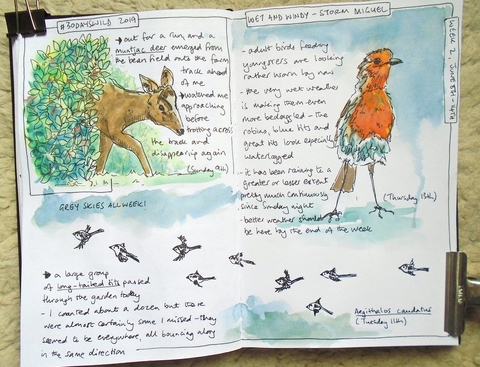 #30DAYSWILD 2019
→ out for a run and a
muntjac deer emerged from
the bean field onto the farm
track ahead
of me
→ watched me
approaching
before
trotting across
the track and
disappearing again
(Sunday 9th)
GREY SKIES ALL WEEK!
→ a large group
of long-tailed tits passed
through the garden today
- I counted about a dozen but there
were almost certainly some I missed - they
seemed to be everywhere, all bouncing along
in the same direction
WET AND WINDY - STORM MIGUEL
WEEK 2, JUNE 8TH - 14TH
- adult birds feeding
youngsters are looking
rather worn by now
- the very wet weather
is making them even
more bedraggled - the
robins, blue tits and
great tits look especially
waterlogged
- it has been raining to a
greater or lesser extent
pretty much continuously
since Sunday night
- better weather should
be here by the end of the week
(Thursday 13th)
Aegithalos caudatus
(Tuesday 11th)